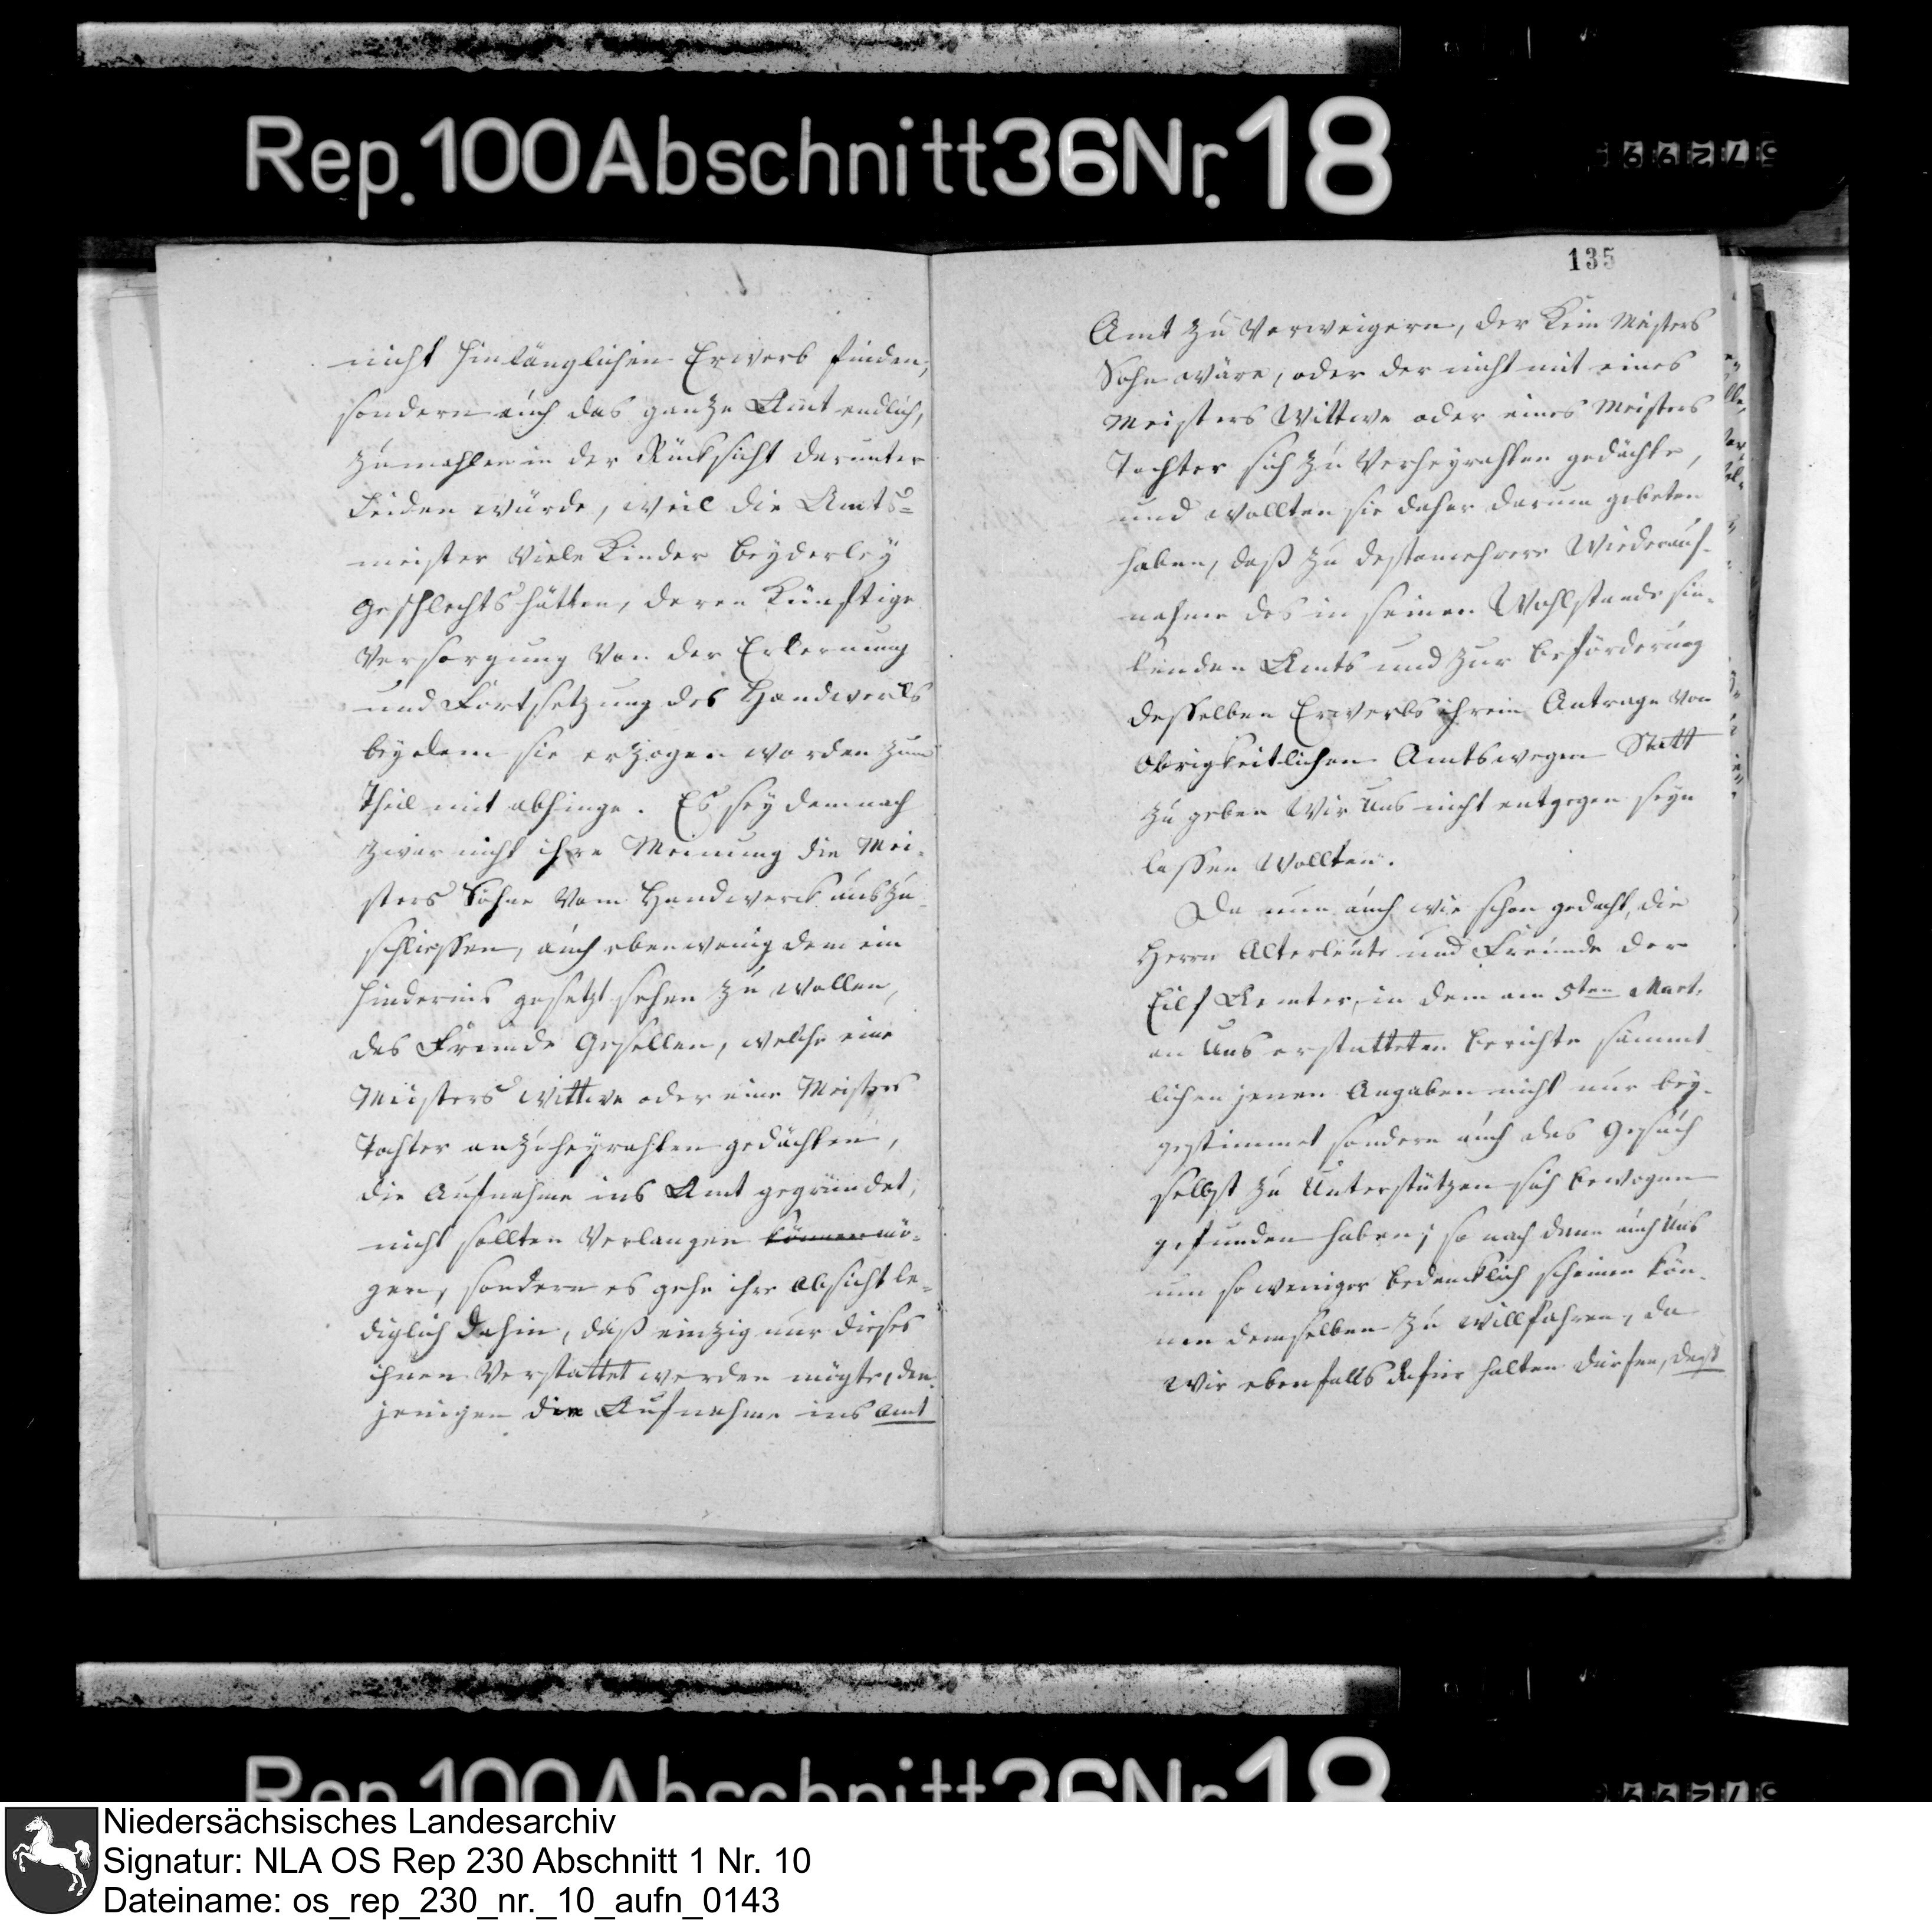 Rep.100Abschnitt36Nr.18
57299
nicht hinlänglichen Erwerb finden,
sondern auch das ganze Amt endlich,
zumahlen in der Rücksicht darunter
Leiden würde, weil die Amts=
meister Viele Kinder beyderley
Geschlechts hätten, deren Künftige
Versorgung Von der Erlernung
und Fortsetzung des Handwercks
beydem sie erzogen worden zum
Theil mit abhinge. Es sey demnach
zwar nicht ihre Meinung die Mei-
sters Söhne Vom Handwerck auszu-
schliessen, auch ebenwenig dem ein
Hinderniß gesetzt sehen zu wollen,
das Fremde Gesellen, welche eine
Meisters Wittwe oder eine Meisters
Tochter anzuheyrahten gedächten,
die Aufnahme ins Amt gegründet,
nicht sollten Verlangen können mö-
gen, sondern es gehe ihre Absicht le-
diglich dahin, daß einzig nur dieses
ihnen Verstattet werden mögte, den
jenigen die Aufnahme ins Amt
135
Amt zu Verweigern, der Kein Meisters
Sohn wäre, oder der nicht mit eines
Meisters Wittwe oder eines Meisters
Tochter sich zu Verheyrahten gedächte,
und wollten sie daher darum gebeten
haben, daß zu destomehrere Wiederauf-
nahme des in seinen Wohlstande sin-
kenden Amts und zur Beförderung
desselben Erwerbs ihrem Antrage Von
Obrigkeitlichen Amtswegen Statt
zu geben Wir Uns nicht entgegen seyn
lassen Wollten.
Da nun auch wie schon gedacht, die
Herrn Alterleute und Freunde der
Eilf Aemter, in dem am 5ten Mart.
an Uns erstatteten Berichte sämmt-
lichen jenen Angaben nicht nur bey-
gestimmet sondern auch das Gesuch
selbst zu Unterstützen sich bewogen
gefunden haben; so nach denn auch Uns
um so weniger bedencklich scheinen kön-
nen demselben zu willfahren, da
Wir ebenfalls dafür halten dürfen, daß
Rep.100Abschnitt36Nr.18
57299
Niedersächsisches Landesarchiv
Signatur: NLA OS Rep 230 Abschnitt 1 Nr. 10
Dateiname: os_rep_230_nr._10_aufn_0143